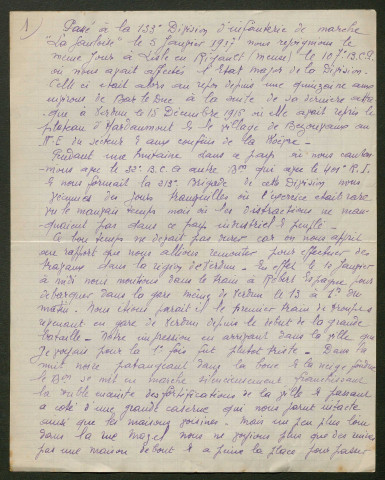 1
Passé à la 133e Division d'infanterie de marche
"La Gauloise" le 5 Janvier 1917 nous rejoignions le
même jour à L'isle en Rigault (Meuse) le 107e B.C.P.
où nous avait affectés l'Etat major de la Division.
Celle ci était alors au repos depuis une quinzaine aux
environs de Bar le Duc à la suite de sa dernière atta-
que à Verdun le 15 Décembre 1915 où elle avait repris le
plateau d'Hardaumont & le village de Bezonvaux au
N.E du secteur & aux confins de la Woëvre.
Pendant une huitaine dans ce pays où nous canton-
nions avec le 32e B.C.P. autre Bon qui avec le 401e R.I.
& nous formait la 313e Brigade de cette Division nous
vécumes des jours tranquilles où l'exercice était rare
vu le mauvais temps mais où les distractions ne man-
quaient pas dans ce pays industriel & peuplé.
Ce bon temps ne devait pas durer car on nous apprit
au rapport que nous allions remonter pour effectuer des
travaux dans la région de Verdun. En effet le 10 Janvier
à midi nous montions dans le train à Robert Espagne pour
débarquer dans la gare même de Verdun le 13 à 1h du
matin. Nous étions paraît-il le premier train de troupes
revenant en gare de Verdun depuis le début de la grande
bataille. Notre impression en arrivant dans la ville que
je voyais pour la 1e fois fut plutôt triste. Dans la
nuit noire pataugeant dans la boue & la neige fondue
le Bon se met en marche silencieusement franchissant
la vieille enceinte des fortifications de la ville & passant
à côté d'une grande caserne qui nous parut intacte
ainsi que les maisons voisines. Mais un peu plus loin
dans la rue Mazel nous ne voyions plus que des ruines
pas une maison debout & à peine la place pour passer